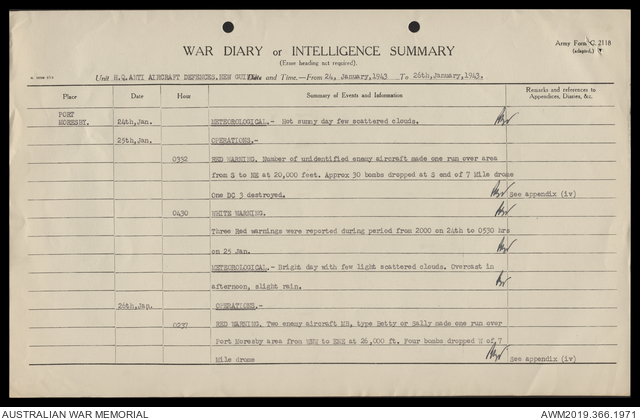 Army Form C. 2118
(adapted.)
WAR DIARY or INTELLIGENCE SUMMARY
(Erase heading not required).
Unit H.Q. ANTI AIRCRAFT DEFENCES, NEW GUINEA Date and Time.—From 24, January, 1943 To 26th, January, 1943.
Place Date Hour Summary of Events and Information Remarks and references to Appendices, Diaries, &c.
PORT MORESBY. 24th, Jan. METEOROLOGICAL.- Hot sunny day few scattered clouds.
25th, Jan. OPERATIONS.-
0332 RED WARNING. Number of unidentified enemy aircraft made one run over area
from S to NE at 20,000 feet. Approx 30 bombs dropped at S end of 7 Mile drome
One DC 3 destroyed. See appendix (iv)
0430 WHITE WARNING.
Three Red warnings were reported during period from 2000 on 24th to 0530 hrs
on 25 Jan.
METEOROLOGICAL.- Bright day with few light scattered clouds. Overcast in
afternoon, slight rain.
26th, Jan. OPERATIONS.-
0237 RED WARNING. Two enemy aircraft MB, type Betty or Sally made one run over
Port Moresby area from WNW to ENE at 26,000 ft. Four bombs dropped W of 7
Mile drome See appendix (iv)
AUSTRALIAN WAR MEMORIAL AWM2019.366.1971